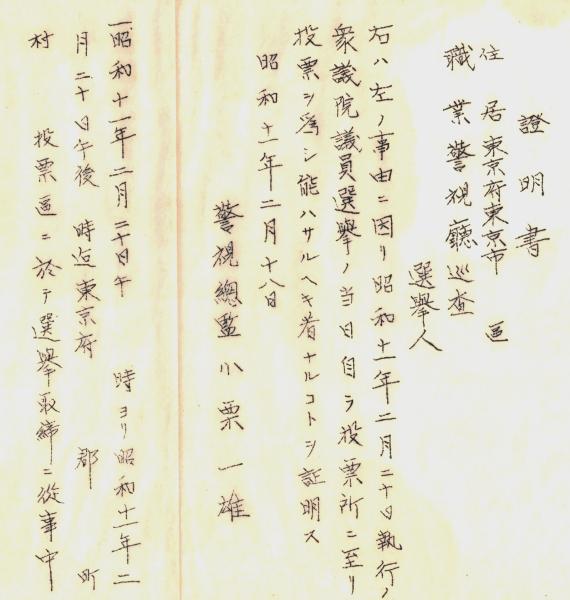 證明書
住居東京府東京市 區
職業警視廳巡査
選擧人
右ハ左ノ事由ニ因リ昭和十一年二月二十日執行ノ
衆議院議員選擧ノ当日自ラ投票所ニ至リ
投票ヲ為シ能ハサルヘキ者ナルコトヲ証明ス
昭和十一年二月十八日
警視總監小栗一雄
一昭和十一年二月二十日午 時ヨリ昭和十一年二
月二十日午後 時迄東京府 郡 町
村 投票區ニ於テ選擧取締ニ從事中